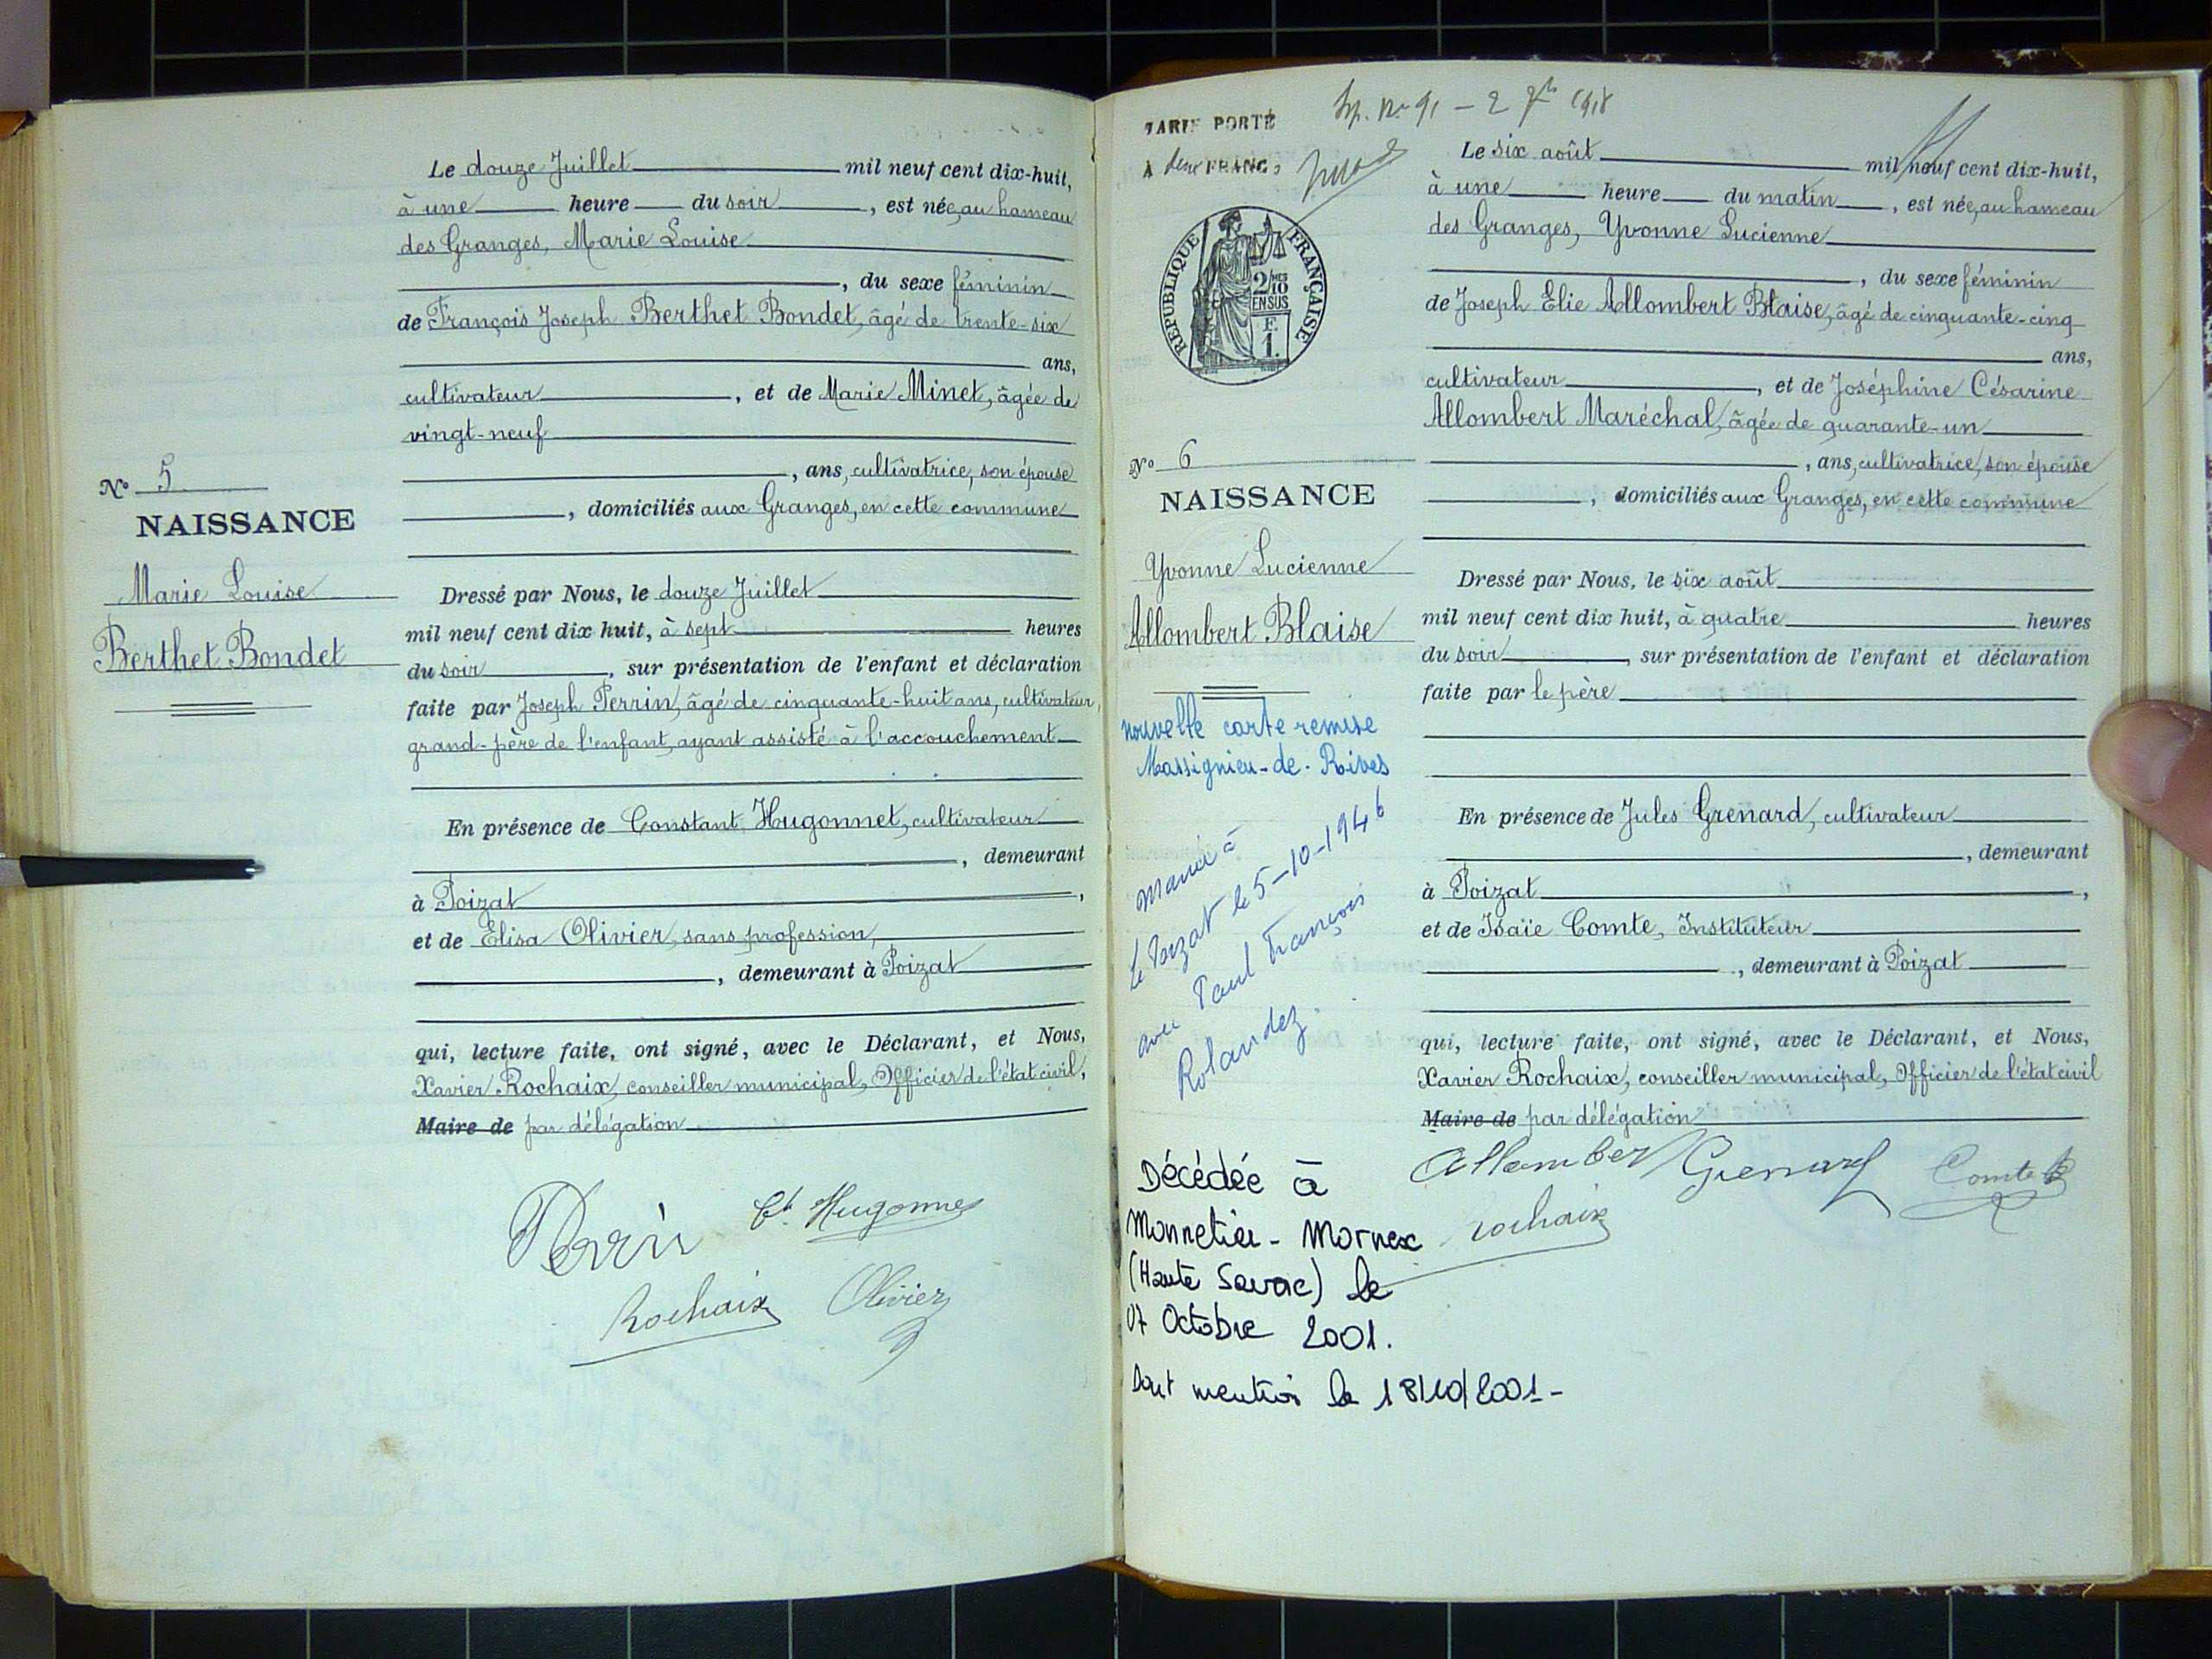 Le douze Juillet mil neuf cent dix-huit,
à une heure du soir, est née, au hameau
des Granges, Marie Louise
, du sexe féminin
de François Joseph Berthet Bondet, âgé de trente-six
ans,
cultivateur, et de Marie Minet, âgée de
vingt-neuf
, ans, cultivatrice, son épouse
, domiciliés aux Granges, en cette commune
N° 5
NAISSANCE
Marie Louise
Berthet Bondet
Dressé par Nous, le douze Juillet
mil neuf cent dix huit, à sept heures
du soir, sur présentation de l'enfant et déclaration
faite par Joseph Perrin, âgé de cinquante-huit ans, cultivateur,
grand-père de l'enfant, ayant assisté à l'accouchement
En présence de Constant Hugonnet, cultivateur
, demeurant
à Poizat,
et de Elisa Olivier, sans profession,
, demeurant à Poizat
qui, lecture faite, ont signé, avec le Déclarant, et Nous,
Xavier Rochaix, conseiller municipal, Officier de l'état civil,
Maire de par délégation
Perrin Ct. Hugonnet
Rochaix Olivier
TARIF PORTÉ
A deux FRANCS
RÉPUBLIQUE FRANÇAISE
2/10 EN SUS
F. 1.
Le six août mil neuf cent dix-huit,
à une heure du matin, est née, au hameau
des Granges, Yvonne Lucienne
, du sexe féminin
de Joseph Elie Allombert Blaise, âgé de cinquante-cinq
ans,
cultivateur, et de Joséphine Césarine
Allombert Maréchal, âgée de quarante-un
, ans, cultivatrice, son épouse
, domiciliés aux Granges, en cette commune
N° 6
NAISSANCE
Yvonne Lucienne
Allombert Blaise
nouvelle carte remise
Massignieu-de-Rives
Mariée à
Le Poizat le 5-10-1946
avec Paul François
Rolandez.
Décédée à
Monnetier-Mornex
(Haute Savoie) le
07 Octobre 2001.
Dont mention le 18/10/2001-
Dressé par Nous, le six août
mil neuf cent dix huit, à quatre heures
du soir, sur présentation de l'enfant et déclaration
faite par le père
En présence de Jules Grenard, cultivateur
, demeurant
à Poizat,
et de Isaïe Comte, Instituteur
, demeurant à Poizat
qui, lecture faite, ont signé, avec le Déclarant, et Nous,
Xavier Rochaix, conseiller municipal, Officier de l'état civil
Maire de par délégation
Allombert Grenard Comte
Rochaix